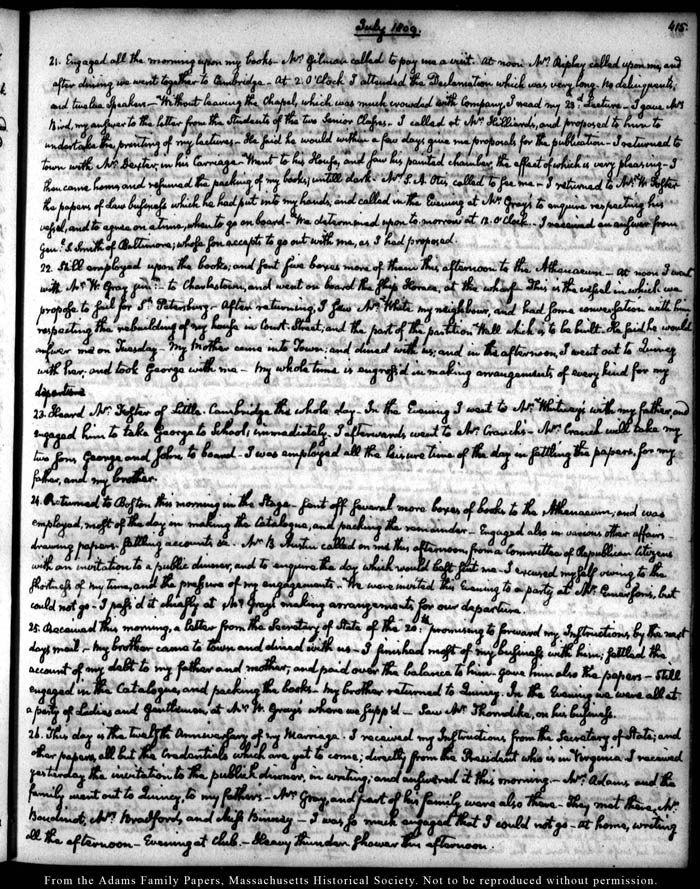 July 1809.
415.
21. Engaged all the morning upon my books. Mr. Gilman called to pay me a visit. At noon Mr. Ripley called upon me, and
after dining we went together to Cambridge. At 2. O'Clock I attended the Declamation which was very long. No delinquents,
and twelve speakers — Without leaving the Chapel, which was much crowded with Company, I read my 23d. Lecture. I gave Mr.
Bird, my answer to the letter from the Students of the two Senior Classes. I called at Mr. Hilliard's, and proposed to him to
undertake the printing of my lectures — He said he would within a few days give me proposals for the publication — I returned to
town with Mr. Dexter, in his Carriage. Went to his House, and saw his painted chamber, the effect of which is very pleasing — I
then came home and resumed the packing of my books, untill dark. Mr. S. A. Otis called to see me — I returned to Mr. W. Foster
the papers of law business which he had put into my hands, and called in the Evening at Mr. Gray's to enquire respecting his
vessel, and to agree on a time, when to go on board — We determined upon to morrow at 12. O'Clock — I received an answer from
Genl. S. Smith of Baltimore; whose son accepts to go out with me, as I had proposed.
22. Still employed upon the books, and sent five boxes more of them this afternoon to the Athenaeum — At noon I went
with Mr. W. Gray junr: to Charlestown, and went on board the ship Horace, at the wharf. This is the vessel in which we
propose to sail for St. Petersburg. After returning, I saw Mr. White my neighbour, and had some conversation with him
respecting the rebuilding of my house in Court-Street, and the part of the partition Wall which is to be built. He said he would
answer me on Tuesday. My Mother came into Town; and dined with us; and in the afternoon, I went out to Quincy
with her, and took George with me — My whole time is engross'd in making arrangements of every kind for my
departure
23. Heard Mr. Foster of Little-Cambridge the whole day — In the Evening I went to Mr. Whitney's with my father, and
engaged him to take George to School, immediately. I afterwards went to Mr. Cranch's — Mrs. Cranch will take my
two sons George and John, to board — I was employed all the leisure time of the day in settling the papers, for my
father, and my brother.
24. Returned to Boston this morning in the Stage. Sent off several more boxes of books to the Athenaeum, and was
employed, most of the day in making the Catalogue, and packing the remainder — Engaged also in various other affairs —
drawing papers. Settling accounts &c — Mr. B. Austin called on me this afternoon, from a Committee of Republican Citizens
with an invitation to a public dinner, and to enquire the day which would best suit me — I excused myself owing to the
shortness of my time, and the pressure of my engagements — We were invited this Evening to a party at Mr. Emerson's, but
could not go — I pass'd it chiefly at Mr. Gray's making arrangements for our departure.
25. Received this morning, a letter from the Secretary of State of the 20th: promising to forward my Instructions by the next
days mail — My brother came to town and dined with us — I finished most of my business with him; settled the
account of my debt to my father and mother, and paid over the balance to him. Gave him also the papers — Still
engaged in the Catalogue, and packing the books. My brother returned to Quincy. In the Evening we were all at
a party of Ladies and Gentlemen, at Mr. W. Gray's where we supp'd — Saw Mr. Thorndike, on his business.
26. This day is the twelfth Anniversary of my Marriage. I received my Instructions from the Secretary of State; and
other papers, all but the Credentials which are yet to come; directly from the President who is in Virginia. I received
yesterday the invitation to the publick dinner, in writing; and answered it this morning — Mrs. Adams and the
family went out to Quincy, to my father's — Mr. Gray, and part of his family were also there — They met there, Mr.
Boudinot, Mrs. Bradford, and Miss Binney — I was so much engaged that I could not go — At home, writing
all the afternoon — Evening at Club — Heavy thunder shower this afternoon.
From the Adams Family Papers, Massachusetts Historical Society. Not to be reproduced without permission.